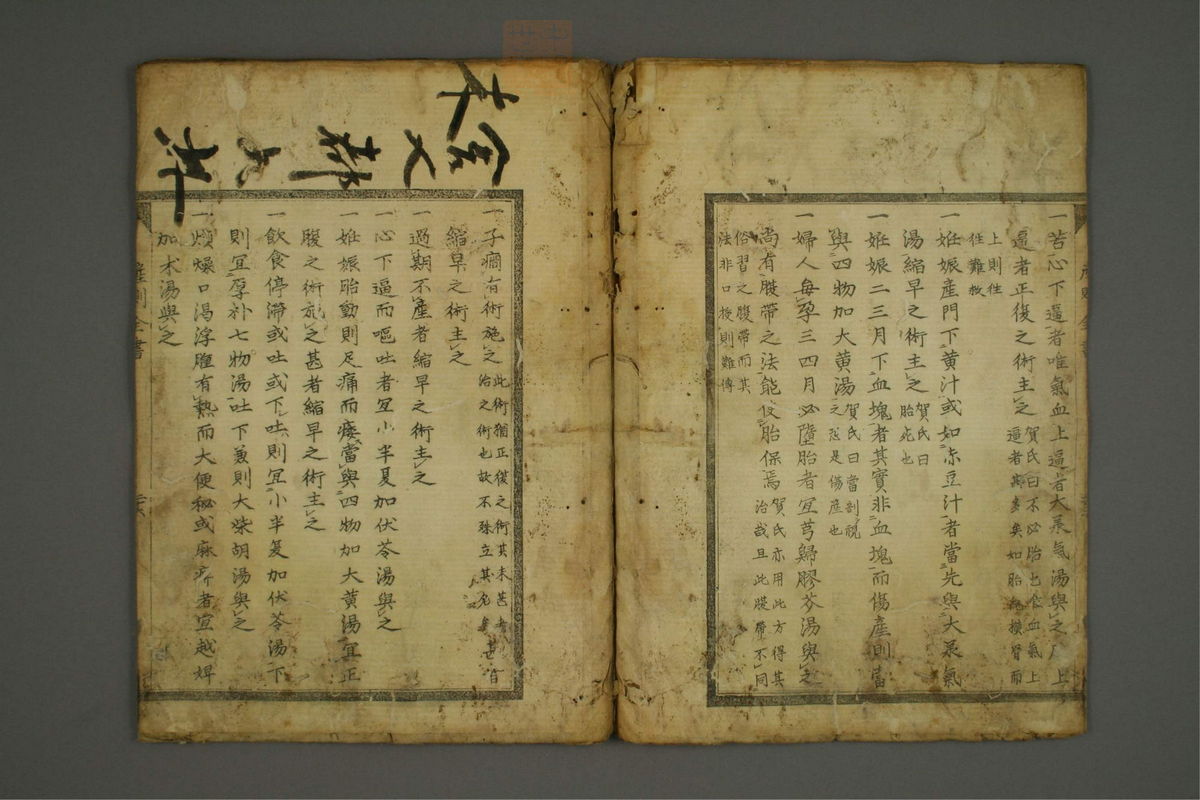 一苦心下逼者唯氣血上逼者大承氣湯與之凡上
逼者正復之術主之 賀氏曰不必胎也食血氣上
逼者斯多矣如胎 橫骨而
上則往
往難救
一妊娠產門下黄汁或如赤豆汁者當先與大承氣
湯縮早之術主之 賀氏曰
胎死也
一妊娠二三月下血塊者其實非血塊而傷產則當
與四物加大黄湯 賀氏曰當剖視
之 是傷產也
一婦人每孕三四月必墮胎者宜芎歸膠艾湯與之
尚有腹帶之法能使胎保焉 賀氏亦用此方得其
治哉且此腹帶不同
俗習之腹帶而其
法非口授則難傳
一子癇有術施之 此術猶正復之術其未甚者
治之術也故不殊立其名矣
縮早之術主之
一過期不產者縮早之術主之
一心下逼而嘔吐者宜小半夏加伏苓湯與之
一妊娠胎動則足痛而痿當與四物加大黄湯宜正
腹之術施之甚者縮早之術主之
一飲食停滯或吐或下吐則宜小半夏加伏苓湯下
則宜厚朴七物湯吐下兼則大柴胡湯與之
一煩燥口渴浮腫有熱而大便秘或麻痹者宜越婢
加朮湯與之
產則全書